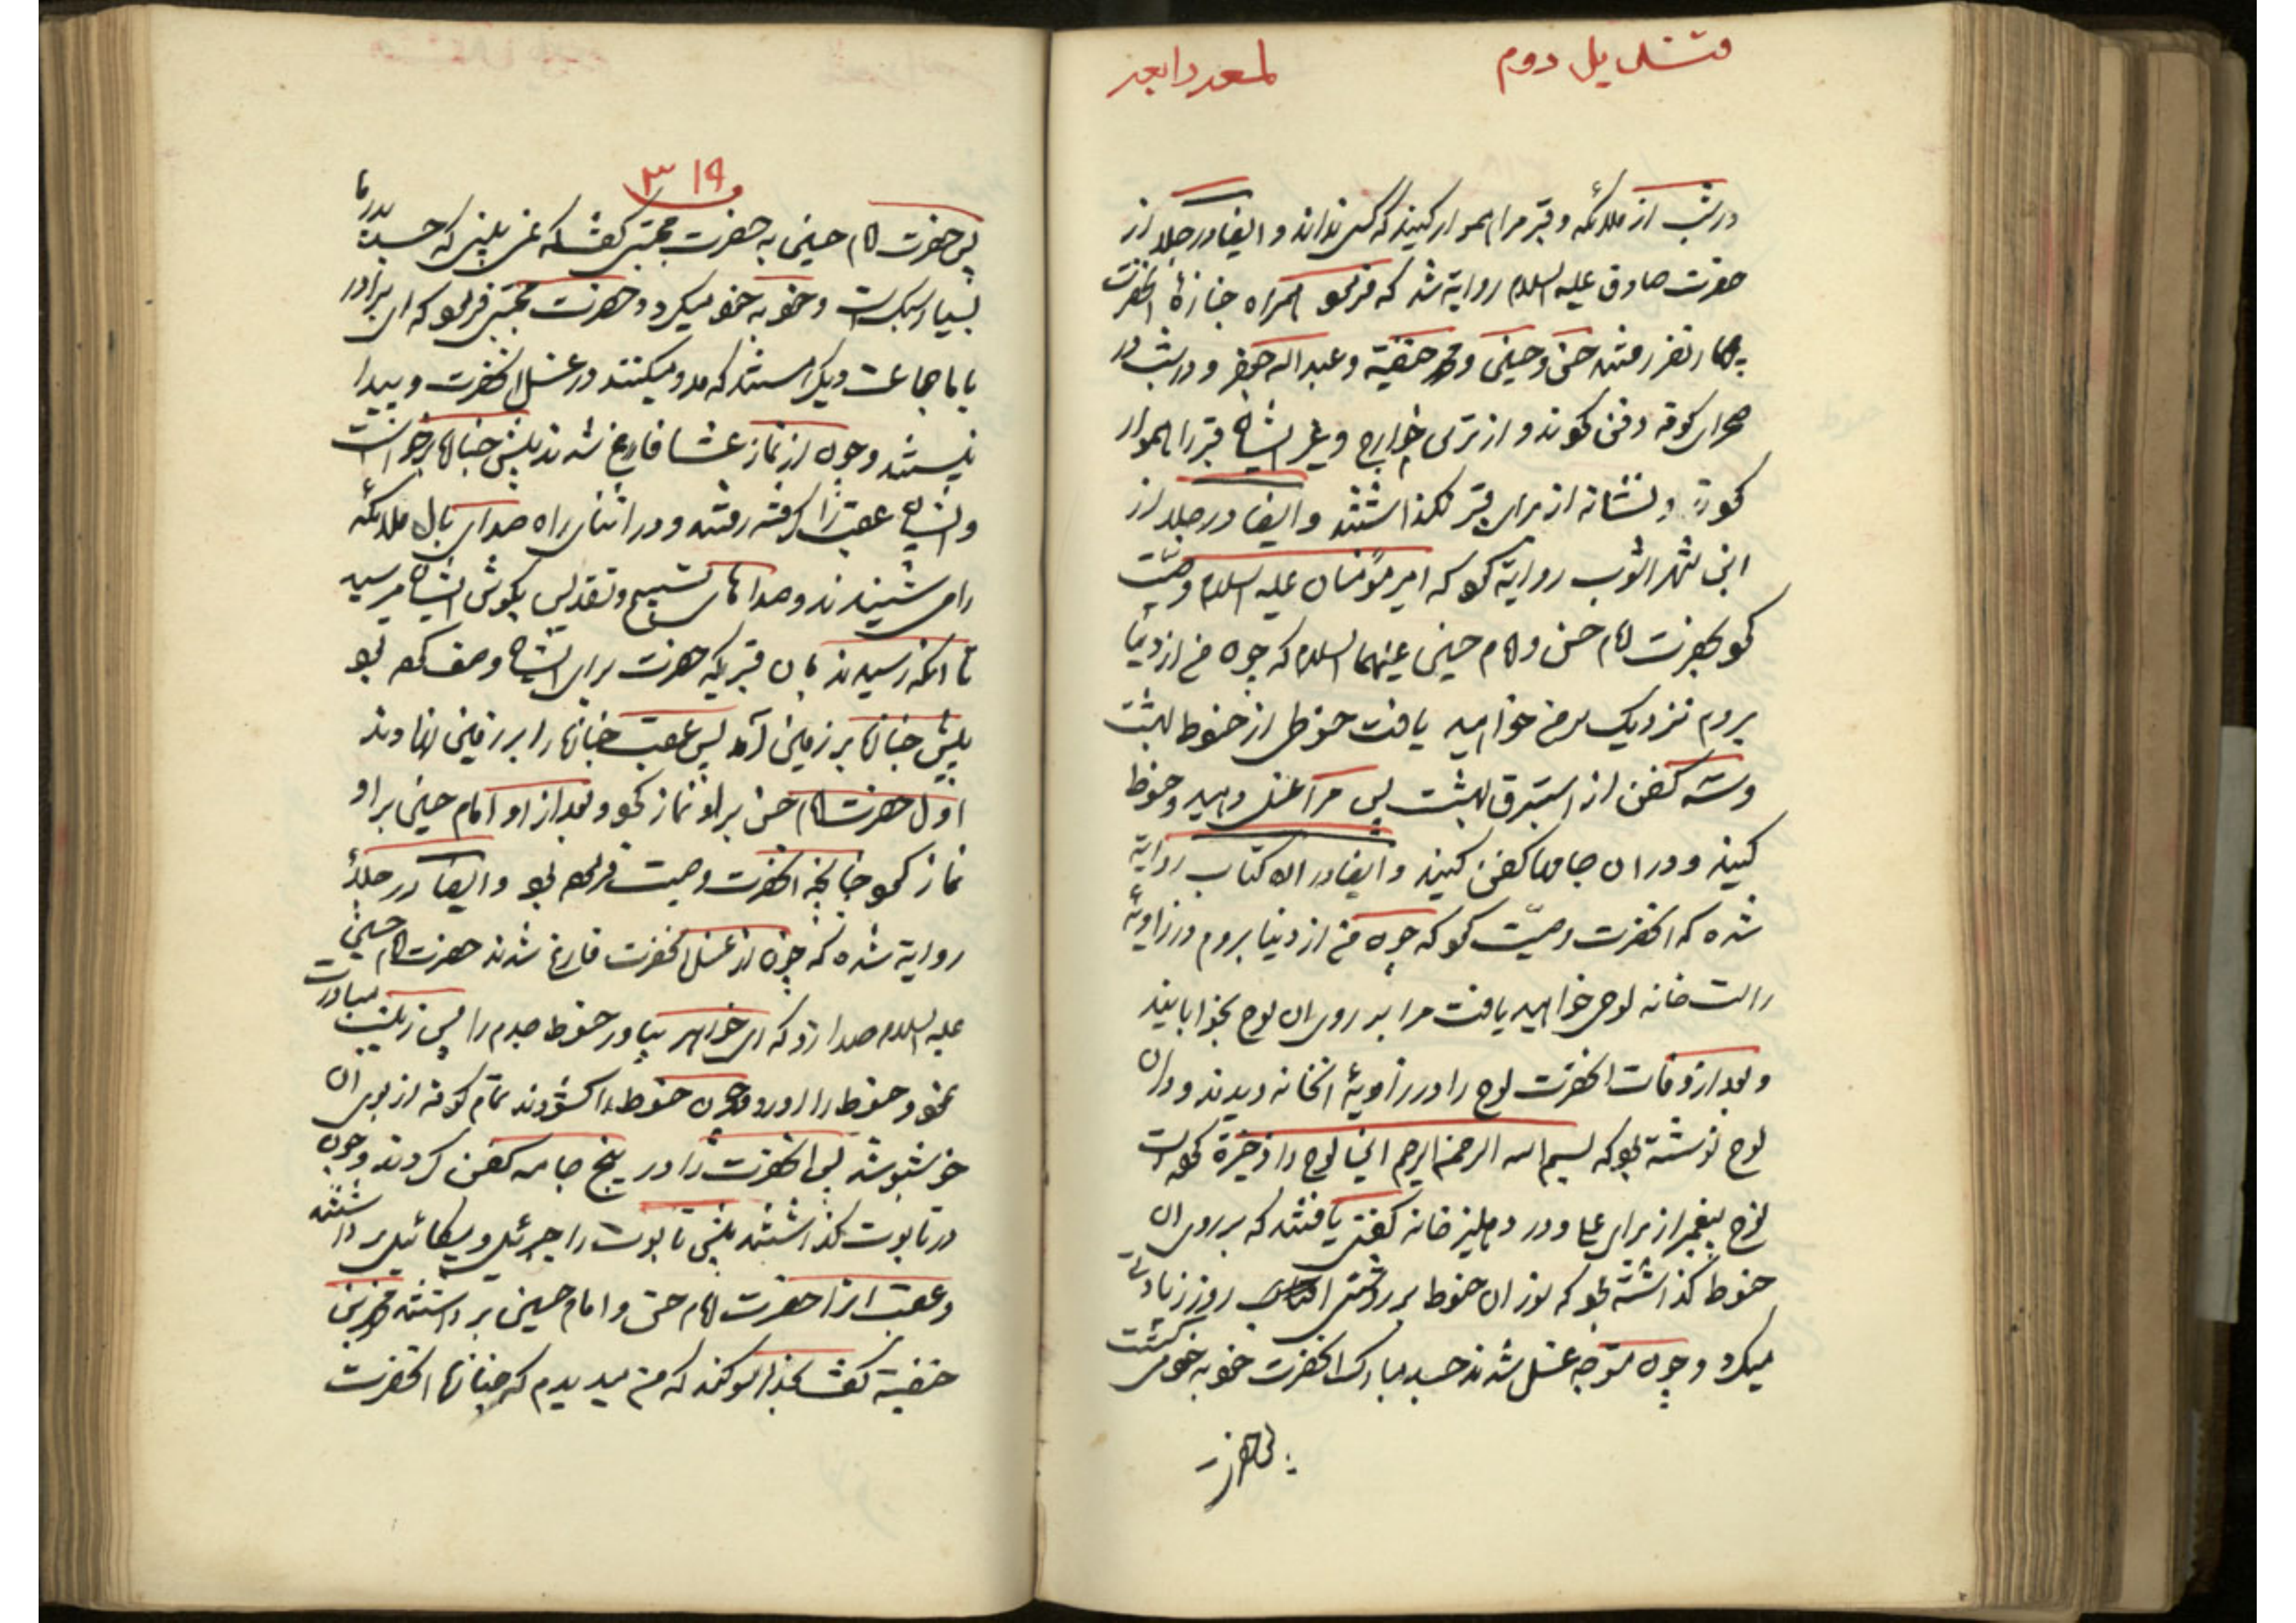 قندیل دوم لمعه رابعه
در شب از ملائکه و قبر مرا هموار کنید که کسی نداند و ایضا در جلد از
حضرت صادق علیه السلام روایة شد که فرمود همراه جنازهٔ انحضرت
چهار نفر رفتند حسن و حسینی و محمد حنفیة و عبد اله جعفر و در شب در
صحرای کوفه دفن کردند و از ترس خوارج و غیر ایشان قبر را هموار
کردند و نشانه از برای قبر نکذاشتند و ایضا در جلد از
ابن شهر اشوب روایة کرد که امیر مؤمنان علیه السلام وصیت
کرد بحضرت امام حسن و امام حسینی علیهما السلام که چون من از دنیا
بروم نزدیک سر من خواهید یافت حنوطی از حنوط بهشت
وسه کفن از استبرق بهشت پس مرا غسل دهید و حنوط
کنید و در ان جامها کفن کنید و ایضا در ان کتاب روایة
شده که انحضرت وصیّت کرد که چون من از دنیا بروم در زاویهٔ
راست خانه لوحی خواهید یافت مرا بر روی ان لوح بخوابانید
و بعد از وفات انحضرت لوح را در زاویهٔ انخانه دیدند و در ان
لوح نوشته بود که بسم اله الرحمن الرحیم این لوح را ذخیرة کرده است
نوح پیغمبر از برای علی و در دهلیز خانه کفنی یافتند که بر روی ان
حنوط کذاشته بود که نور ان حنوط بر روشنی روز زیادتی
میکرد و چون متوجه غسل شدند جسد مبارک انحضرت خود به خود می کشت
پس حضرت
۳۱۹
پس حضرت امام حسینی به حضرت مجتبی کفت که نمی بینی که جسد پدر ما
بسیار سبک است و خود به خود میکردد حضرت مجتبی فرمود که ای برادر
با ما جماعت دیکر هستند که مدد میکنند در غسل انحضرت و پیدا
نیستند و چون از نماز عشا فارغ شدند پیش جنازه برخواست
و ایشان عقب را کرفته رفتند و در اثنای راه صدای بال ملائکه
را می شنیدند و صداهای تسبیح و تقدیس بکوش ایشان میرسید
تا انکه رسیدند بان قبریکه حضرت برای ایشان وصف کرده بود
پیش جنازه بر زمینی آمد پس عقب جنازه را بر زمینی نهادند
اوّل حضرت امام حسن بر او نماز کرد و بعد از او امام حسینی بر او
نماز کرد چنانچه انحضرت وصیت فرموده بود و ایضا در جلاء
روایة شده که چون از غسل انحضرت فارغ شدند حضرت امام حسینی
علیه السلام صدا زد که ای خواهر بیاور حنوط جدم را پس زینب مبادرت
نمود و حنوط را اورد و چون حنوط را کشودند تمام کوفه از بوی ان
خوشبو شد پس انحضرت را در پنج جامه کفن کردند و چون
در تابوت کذاشتند پیش تابوت را جبرئیل و میکائیل برداشتند
و عقب انرا حضرت امام حسن و امام حسینی برداشتند محمد بن
حنفیة کفت بخدا سوکند که من میدیدم که جنازه انحضرت